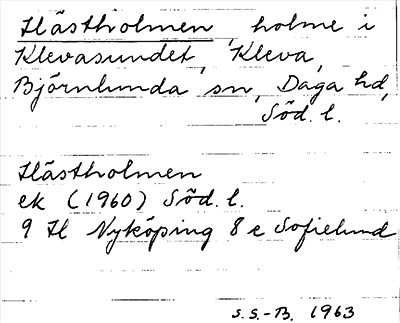 Hästholmen, holme i
Klevasundet, Kleva,
Björnlunda sn, Daga hd,
Söd. l.
Hästholmen
ek (1960) Söd. l.
9 H Nyköping 8 e Sofielund
S.S.-B. 1963